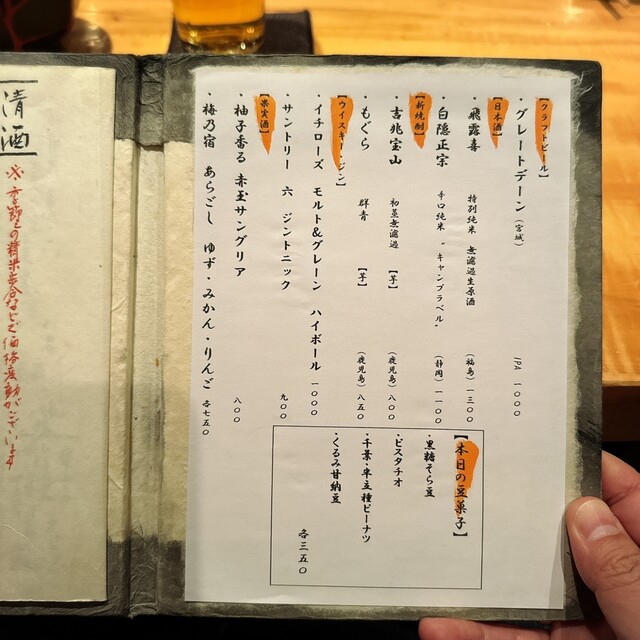 【クラフトビール】
・グレートデーン（宮城） IPA 一〇〇〇
【日本酒】
・飛露喜 特別純米 無濾過生原酒 （福島） 一三〇〇
・白隠正宗 辛口純米 "キャンプラベル" （静岡） 一一〇〇
【新焼酎】
・吉兆宝山 初蒸無濾過 【芋】 （鹿児島） 八〇〇
・もぐら 群青 【芋】 （鹿児島） 八五〇
【ウイスキー・ジン】
・イチローズ モルト&グレーン ハイボール 一〇〇〇
・サントリー 六 ジントニック 九〇〇
【果実酒】
・柚子香る 赤玉サングリア 八〇〇
・梅乃宿 あらごし ゆず・みかん・りんご 各七五〇
【本日の豆菓子】
・黒糖そら豆
・ピスタチオ
・千葉・半立種ピーナツ
・くるみ甘納豆
各三五〇
清酒
※季節との精米歩合などで価格変動がございます